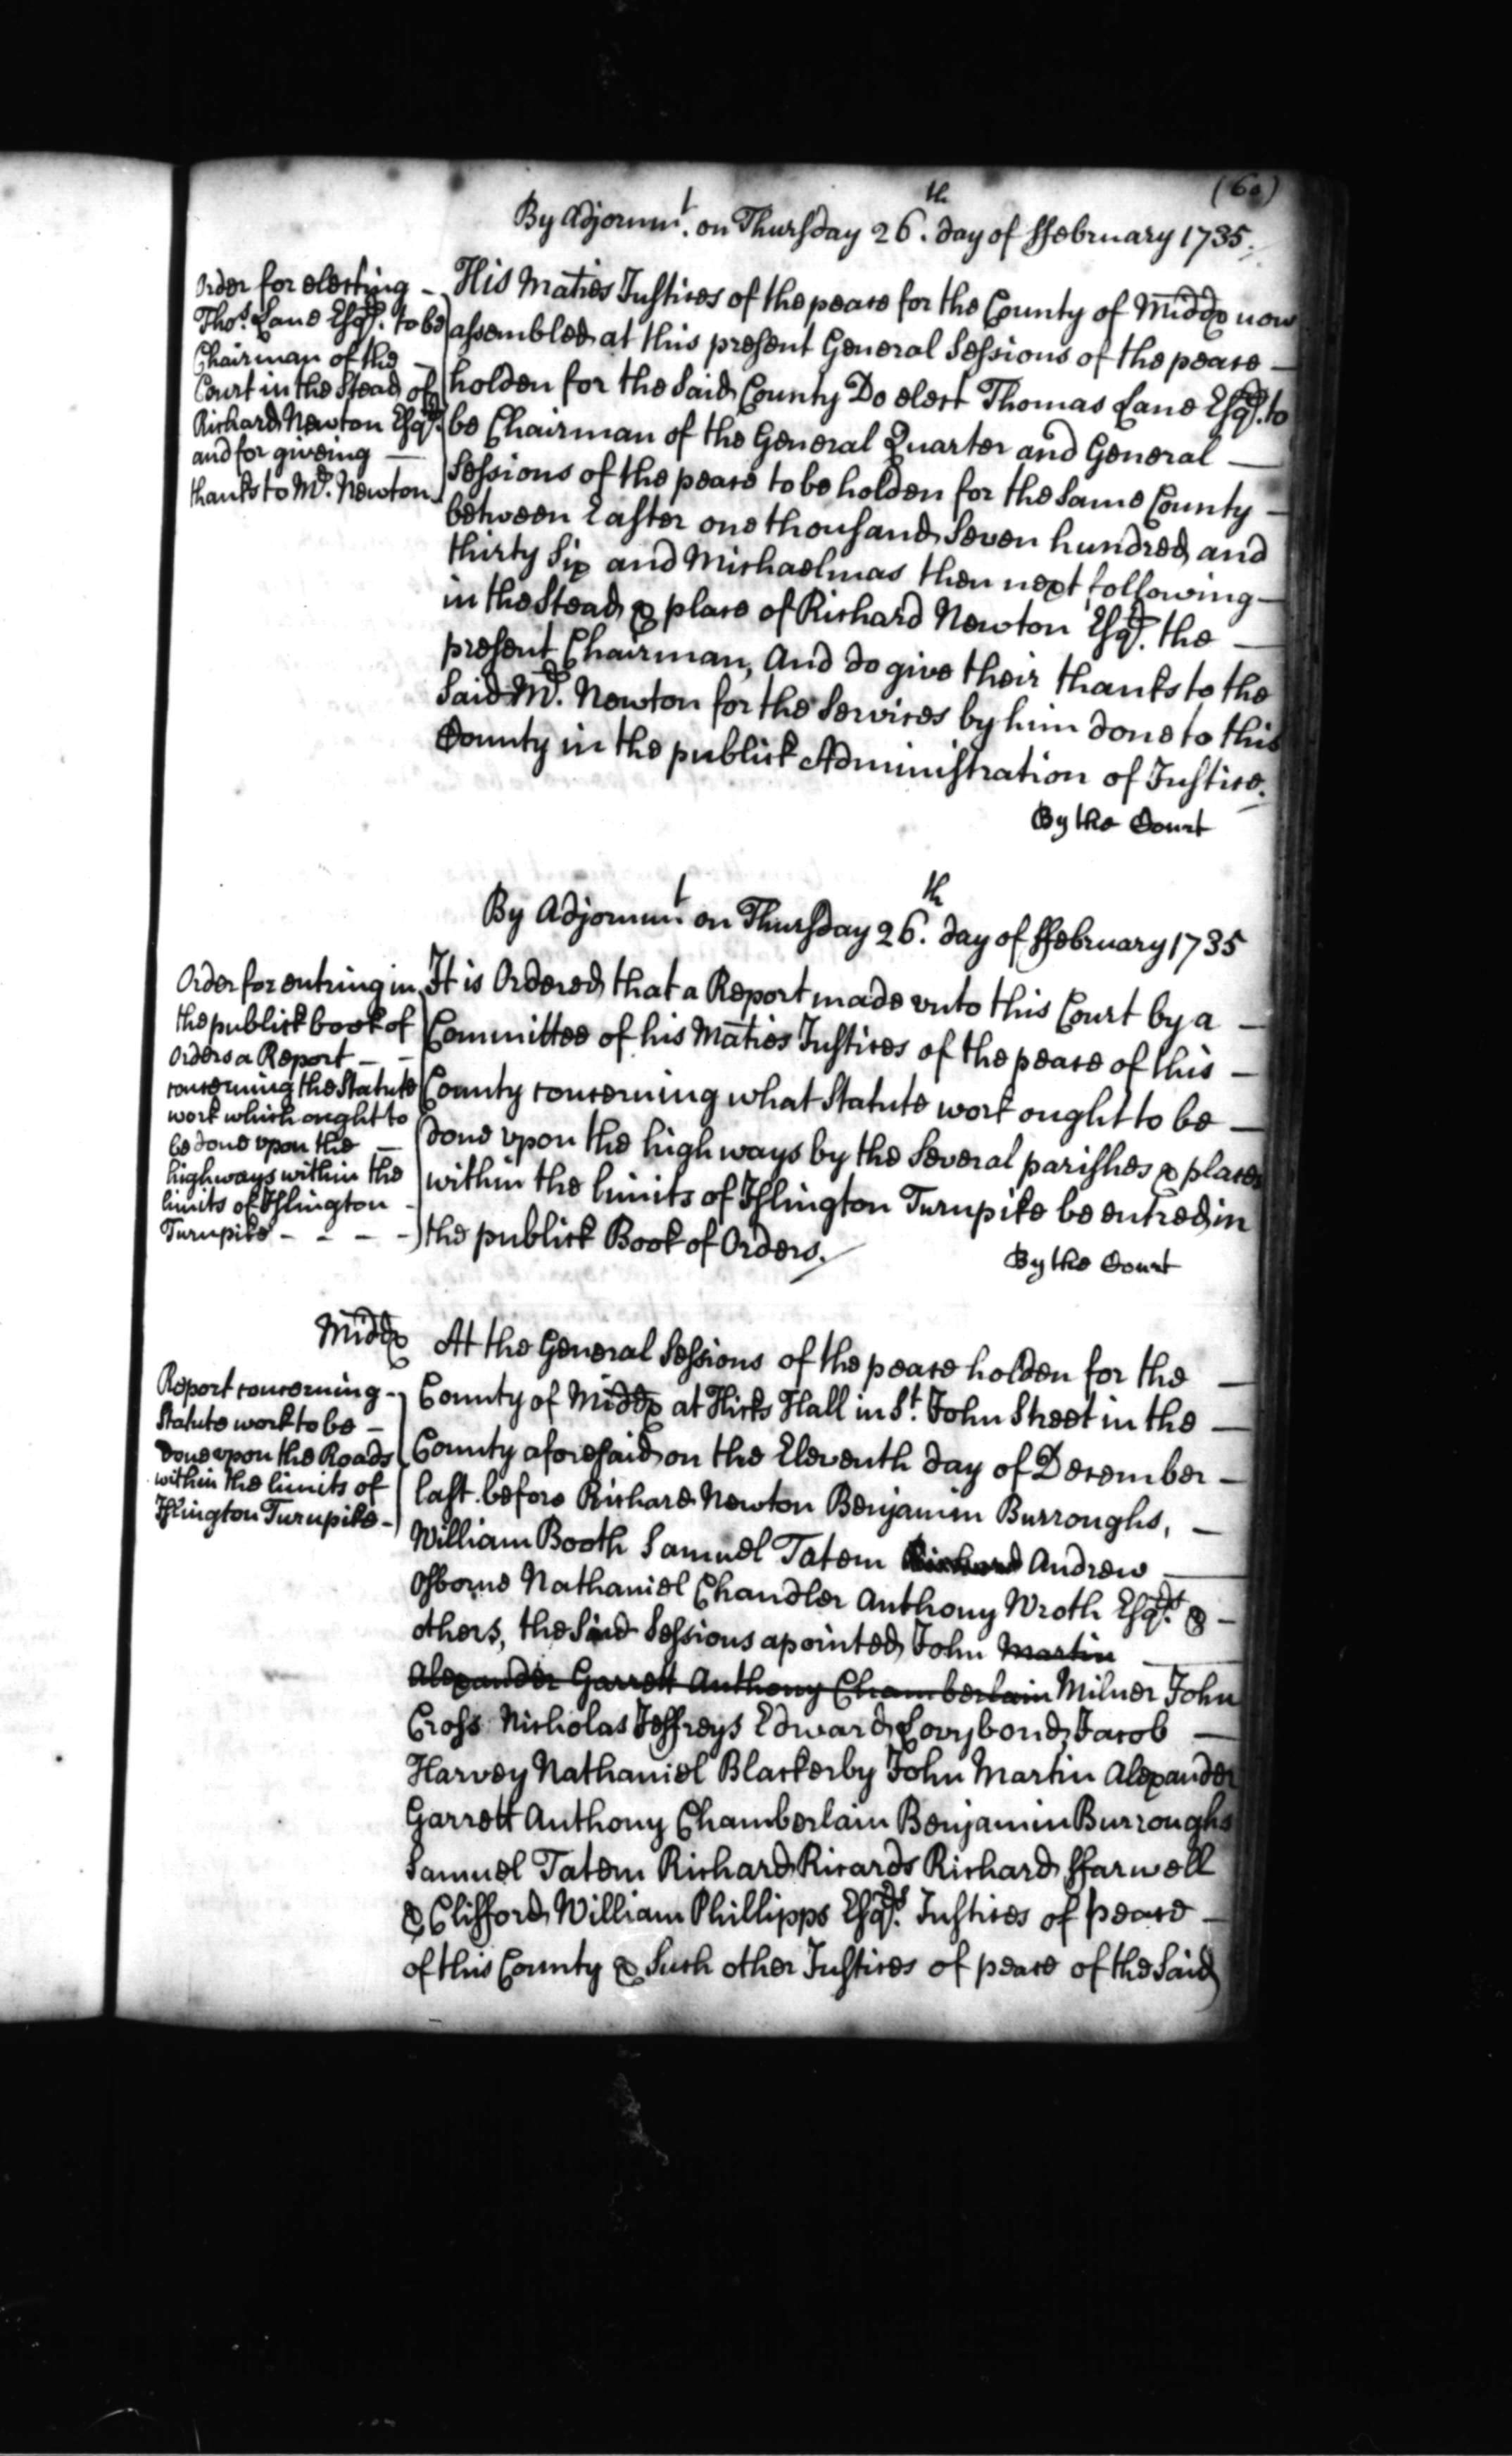 (60)
By Adjornmt. on Thursday 26th. day of ffebruary 1735.
Order for electing
Thos. Lane Esqr. to be
Chairman of the
Court in the Stead of
Richard Newton Esqr.
and for giveing
thanks to Mr. Newton
His Maties Justices of the peace for the County of Middx now
assembled at this present General Sessions of the peace
holden for the Said County Do elect Thomas Lane Esqr. to
be Chairman of the General Quarter and General
Sessions of the peace to be holden for the Same County
between Easter one thousand Seven hundred and
thirty Six and Michaelmas then next following
in the Stead & place of Richard Newton Esqr. the
present Chairman, And do give their thanks to the
Said Mr. Newton for the Services by him done to this
County in the publick Administration of Justice.
By the Court
By Adjornmt. on Thursday 26th. day of ffebruary 1735
Order for entring in
the publick book of
Orders a Report
concerning the Statute
work which ought to
be done vpon the
highways within the
limits of Islington
Turnpike
It is Ordered that a Report made vnto this Court by a
Committee of his Maties Justices of the peace of this
County concerning what Statute work ought to be
done vpon the high ways by the Several parishes & places
within the limits of Islington Turnpike be entred in
the publick Book of Orders.
By the Court
Middx
Report concerning
Statute work to be
done vpon the Roads
within the limits of
Islington Turnpike
At the General Sessions of the peace holden for the
County of Middx at Hicks Hall in St. John Street in the
County aforesaid on the Eleventh day of December
last before Richard Newton Benjamin Burroughs,
William Booth Samuel Tatem Richard Andrew
Osborne Nathaniel Chandler Anthony Wroth Esqrs. &
others, the Said Sessions apointed John Martin
Alexander Garrett Anthony Chamberlain Milner John
Cross Nicholas Jeffreys Edward Lovybond Jacob
Harvey Nathaniel Blackerby John Martin Alexander
Garrett Anthony Chamberlain Benjamin Burroughs
Samuel Tatem Richard Ricards Richard ffarwell
& Clifford William Phillipps Esqrs. Justices of peace
of this County & Such other Justices of peace of the Said